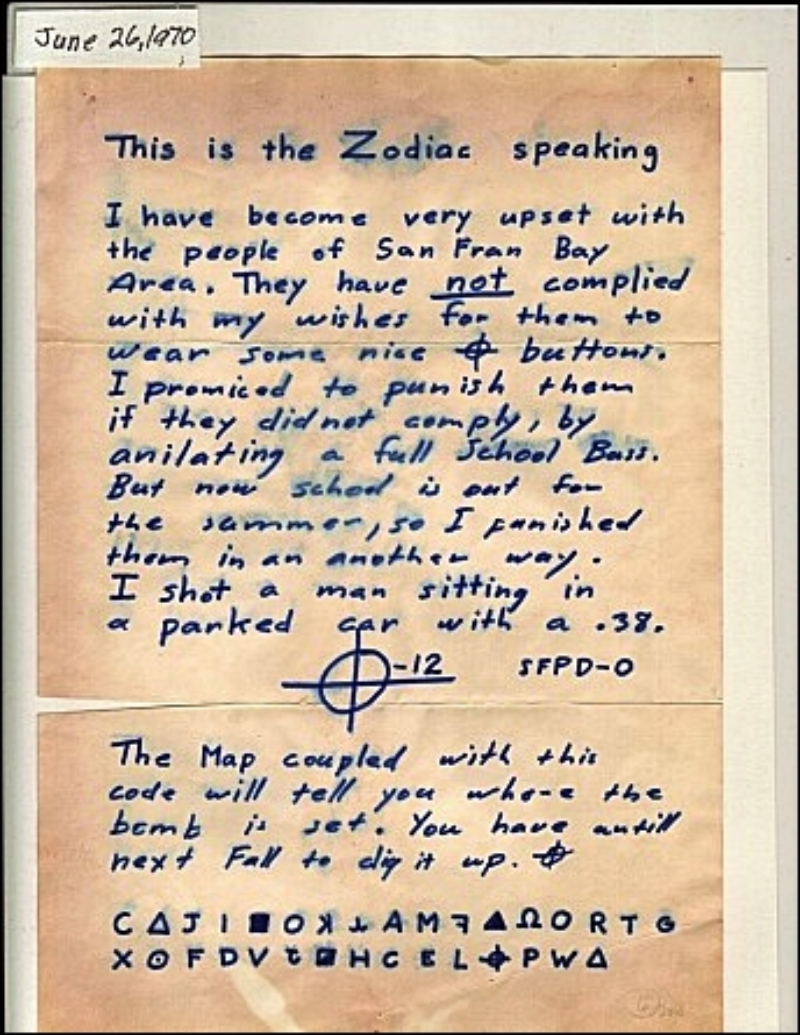 June 26, 1970
This is the Zodiac speaking
I have become very upset with
the people of San Fran Bay
Area. They have not complied
with my wishes for them to
wear some nice ⌖ buttons.
I promiced to punish them
if they did not comply, by
anilating a full School Buss.
But now school is out for
the summer, so I punished
them in an another way.
I shot a man sitting in
a parked car with a .38.
⌖-12 SFPD-0
The Map coupled with this
code will tell you where the
bomb is set. You have untill
next Fall to dig it up. ⌖
C Δ J I ■ O ꓘ ⅄ A M ꟻ ▲ Ω O R T G
X ⊙ F D V Ɛ ■ H C E L ⌖ P W Δ